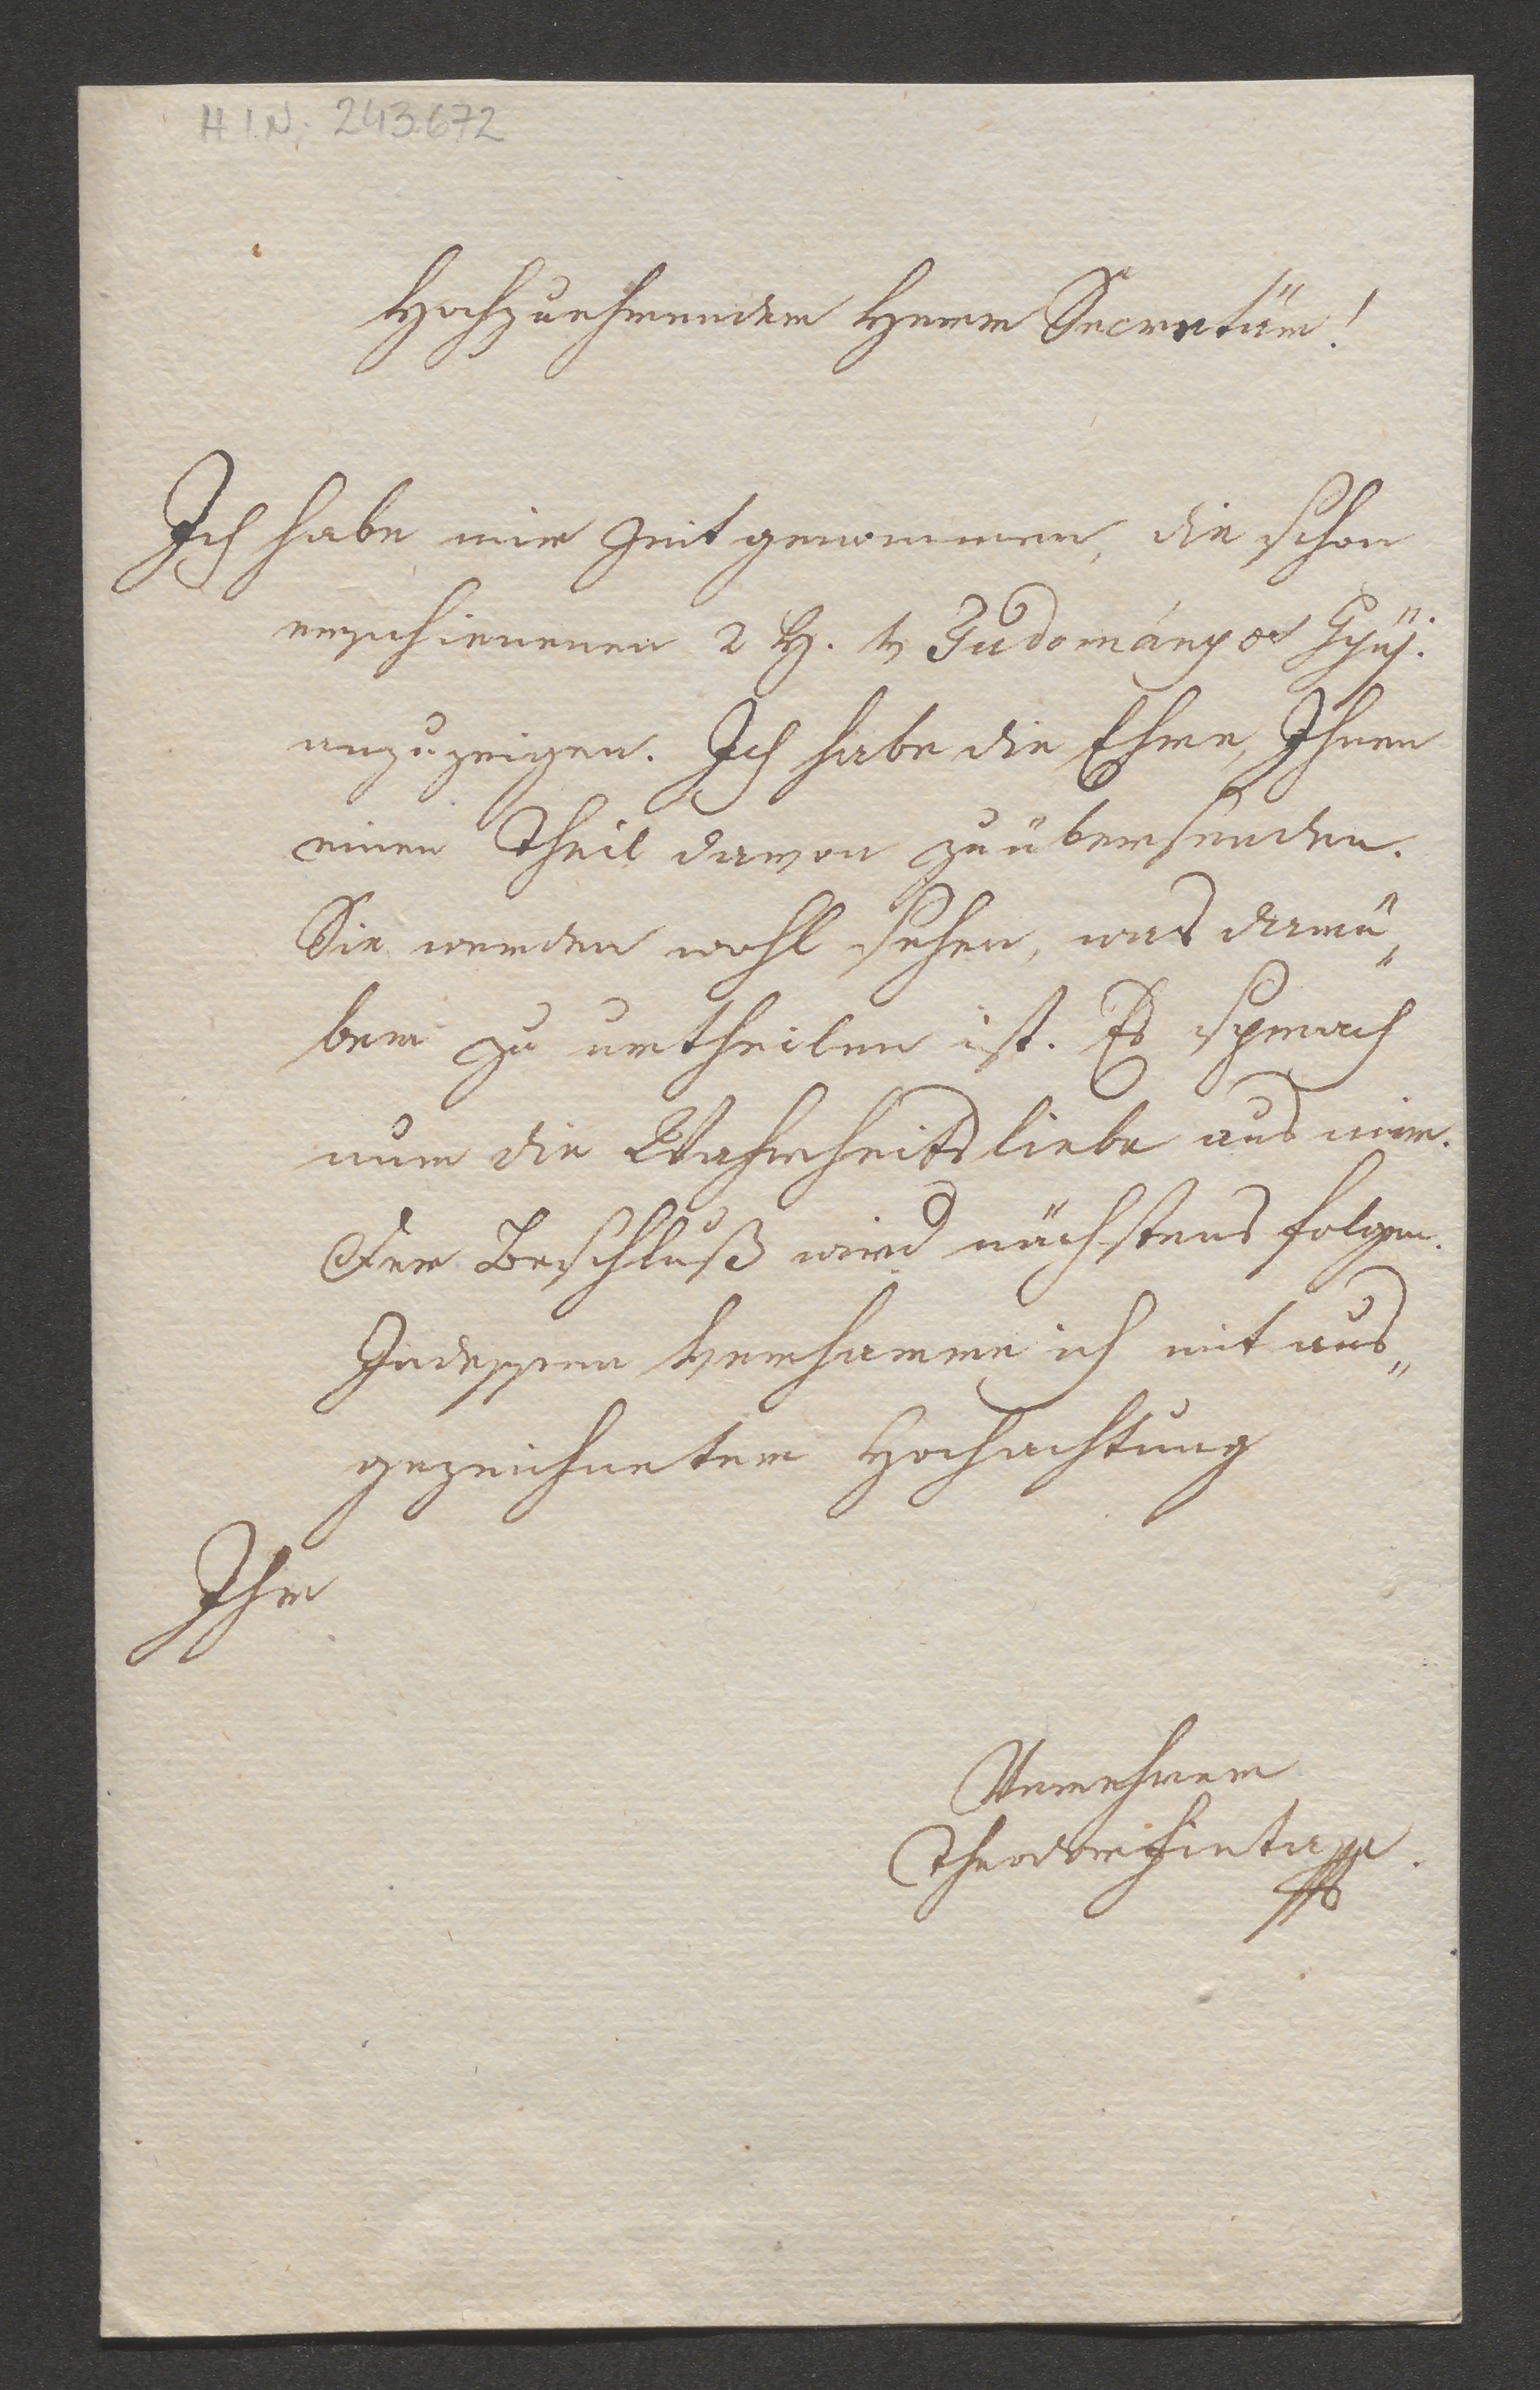 H.I.N. 243.672
Hochzuehrender Herr Secretär!
Ich habe mir Zeit genommen, die schon
erschienenen 2 H. v Tudományos Gyüj.
anzuzeigen. Ich habe die Ehre, Ihnen
einen Theil davon zu übersenden.
Sie werden wohl sehen, was darü„
ber zu urtheilen ist. Es sprach
nur die Wahrheitsliebe aus mir.
Der Beschluß wird nächstens folgen.
Indessen verharre ich mit aus„
gezeichneter Hochachtung
Ihr
Verehrer
Theodor